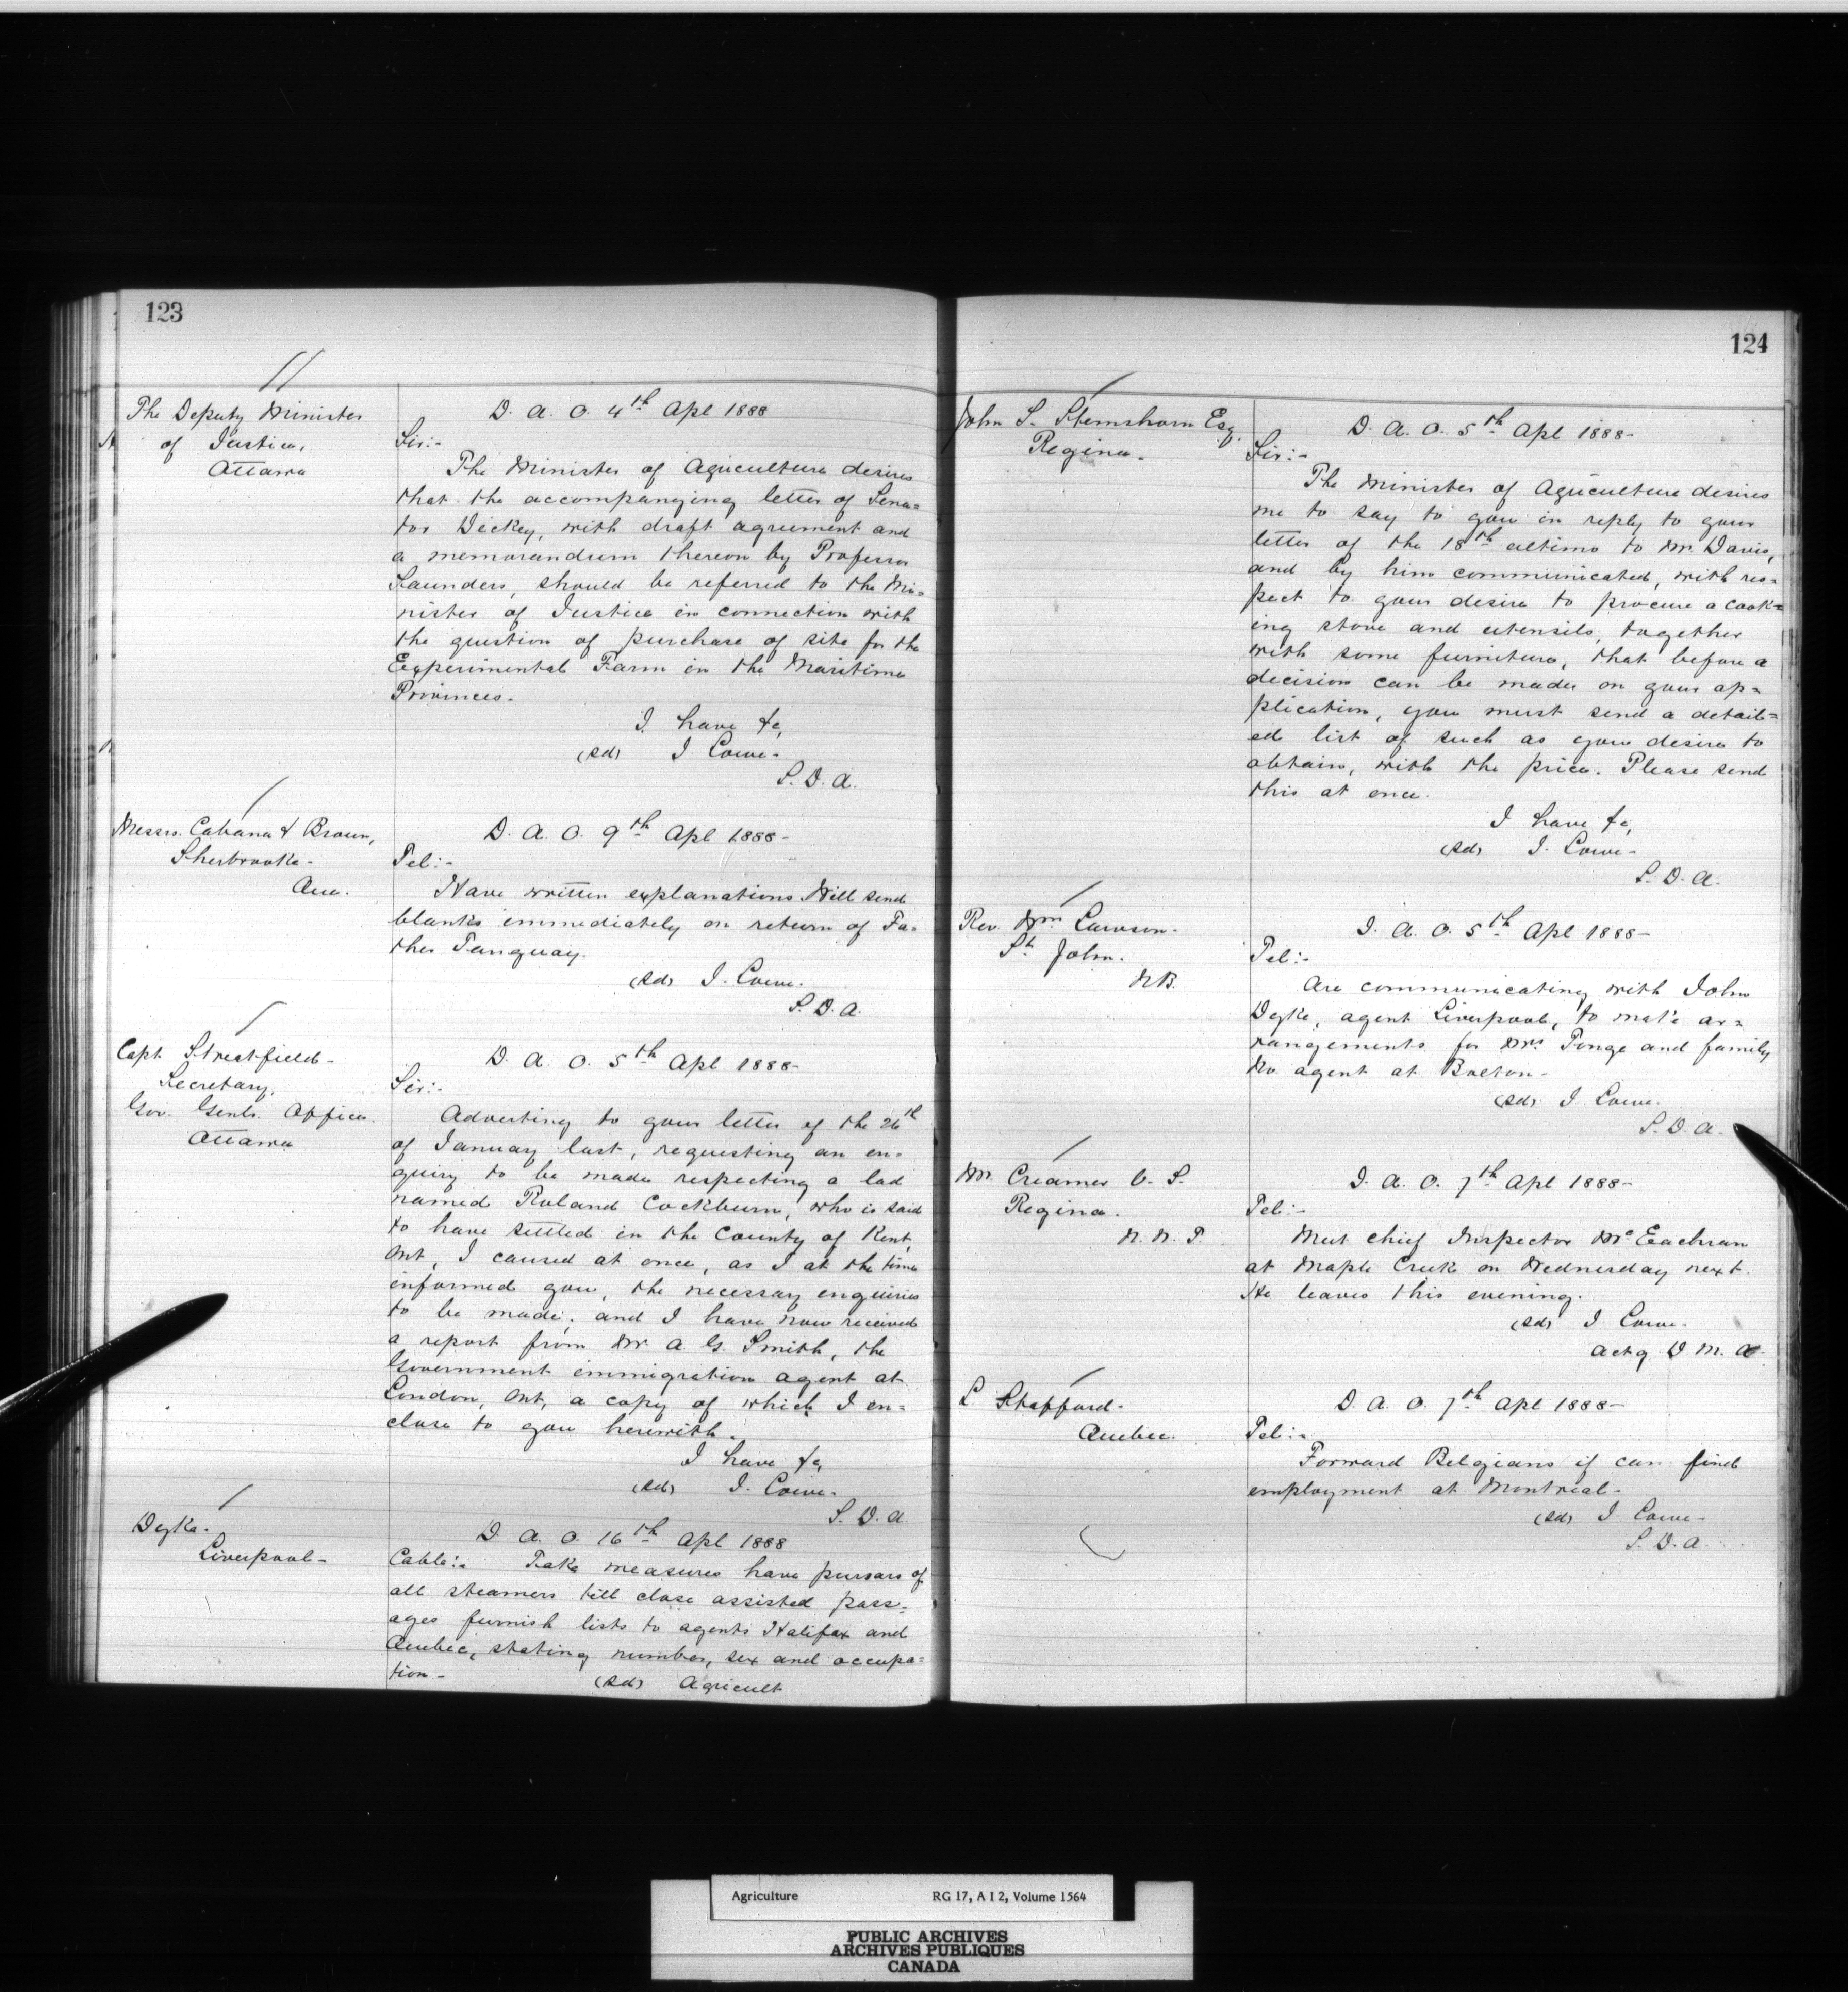 123
The Deputy Minister
of Justice,
Ottawa
D. A. O. 4th Apl 1888
Sir:-
The Minister of Agriculture desires
that the accompanying letter of Sena=
tor Dickey, with draft agreement and
a memorandum thereon by Professor
Saunders, should be referred to the Mi=
nister of Justice in connection with
the question of purchase of site for the
Experimental Farm in the Maritime
Provinces.
I have &c,
(sd) J Lowe.
S. D. A.
Messrs. Cabana & Brown,
Sherbrooke-
Que.
D. A. O. 9th Apl 1888-
Tel:-
Have written explanations. Will send
blanks immediately on return of Fa=
ther Tanguay.
(sd) J. Lowe.
S. D. A.
Capt Streatfield-
Secretary,
Gov. Genls. Office.
Ottawa
D. A. O. 5th Apl 1888-
Sir:-
Adverting to your letter of the 26th
of January last, requesting an en=
quiry to be made respecting a lad
named Roland Cockburn, who is said
to have settled in the County of Kent,
Ont, I caused at once, as I at the time
informed you, the necessary enquiries
to be made; and I have now received
a report from Mr. A. G. Smith, the
Government immigration agent at
London, Ont, a copy of which I en=
close to you herewith.
I have &c,
(sd) J. Lowe.
S. D. A.
Dyke-
Liverpool-
D. A. O. 16th Apl 1888
Cable:- Take measures have pursars of
all steamers till close assisted pass=
ages furnish lists to agents Halifax and
Quebec, stating number, sex and occupa=
tion-
(sd) Agricult
124
John S. Esq.
Regina.
D. A. O. 5th Apl 1888-
Sir:-
The Minister of Agriculture desires
me to say to you in reply to your
letter of the 18th ultimo to Mr. Davis,
and by him communicated, with res=
pect to your desire to procure a cook=
ing stove and utensils, together
with some furniture, that before a
decision can be made on your ap=
plication, you must send a detail=
ed list of such as you desire to
obtain, with the price. Please send
this at once.
I have &c,
(sd) J. Lowe-
S. D. A.
Rev. Wm Lawson.
St John.
N.B.
D. A. O. 5th Apl 1888-
Tel:-
Are communicating with John
Dyke, agent Liverpool, to make ar=
rangements for Mrs and family
No agent at Boston-
(sd) J Lowe.
S. D. A.
Mr. Creamer V. S.
Regina.
N. W. T.
D. A. O. 7th Apl 1888-
Tel:-
Meet chief Inspector McEachran
at Maple Creek on Wednesday next.
He leaves this evening.
(sd) J Lowe-
Actg D. M. A.
L. Stafford-
Quebec.
D. A. O. 7th Apl 1888-
Tel:-
Forward Belgians if can find
employment at Montreal-
(sd) J. Lowe-
S. D. A.
Agriculture RG 17, A I 2, Volume 1564
PUBLIC ARCHIVES
ARCHIVES PUBLIQUES
CANADA